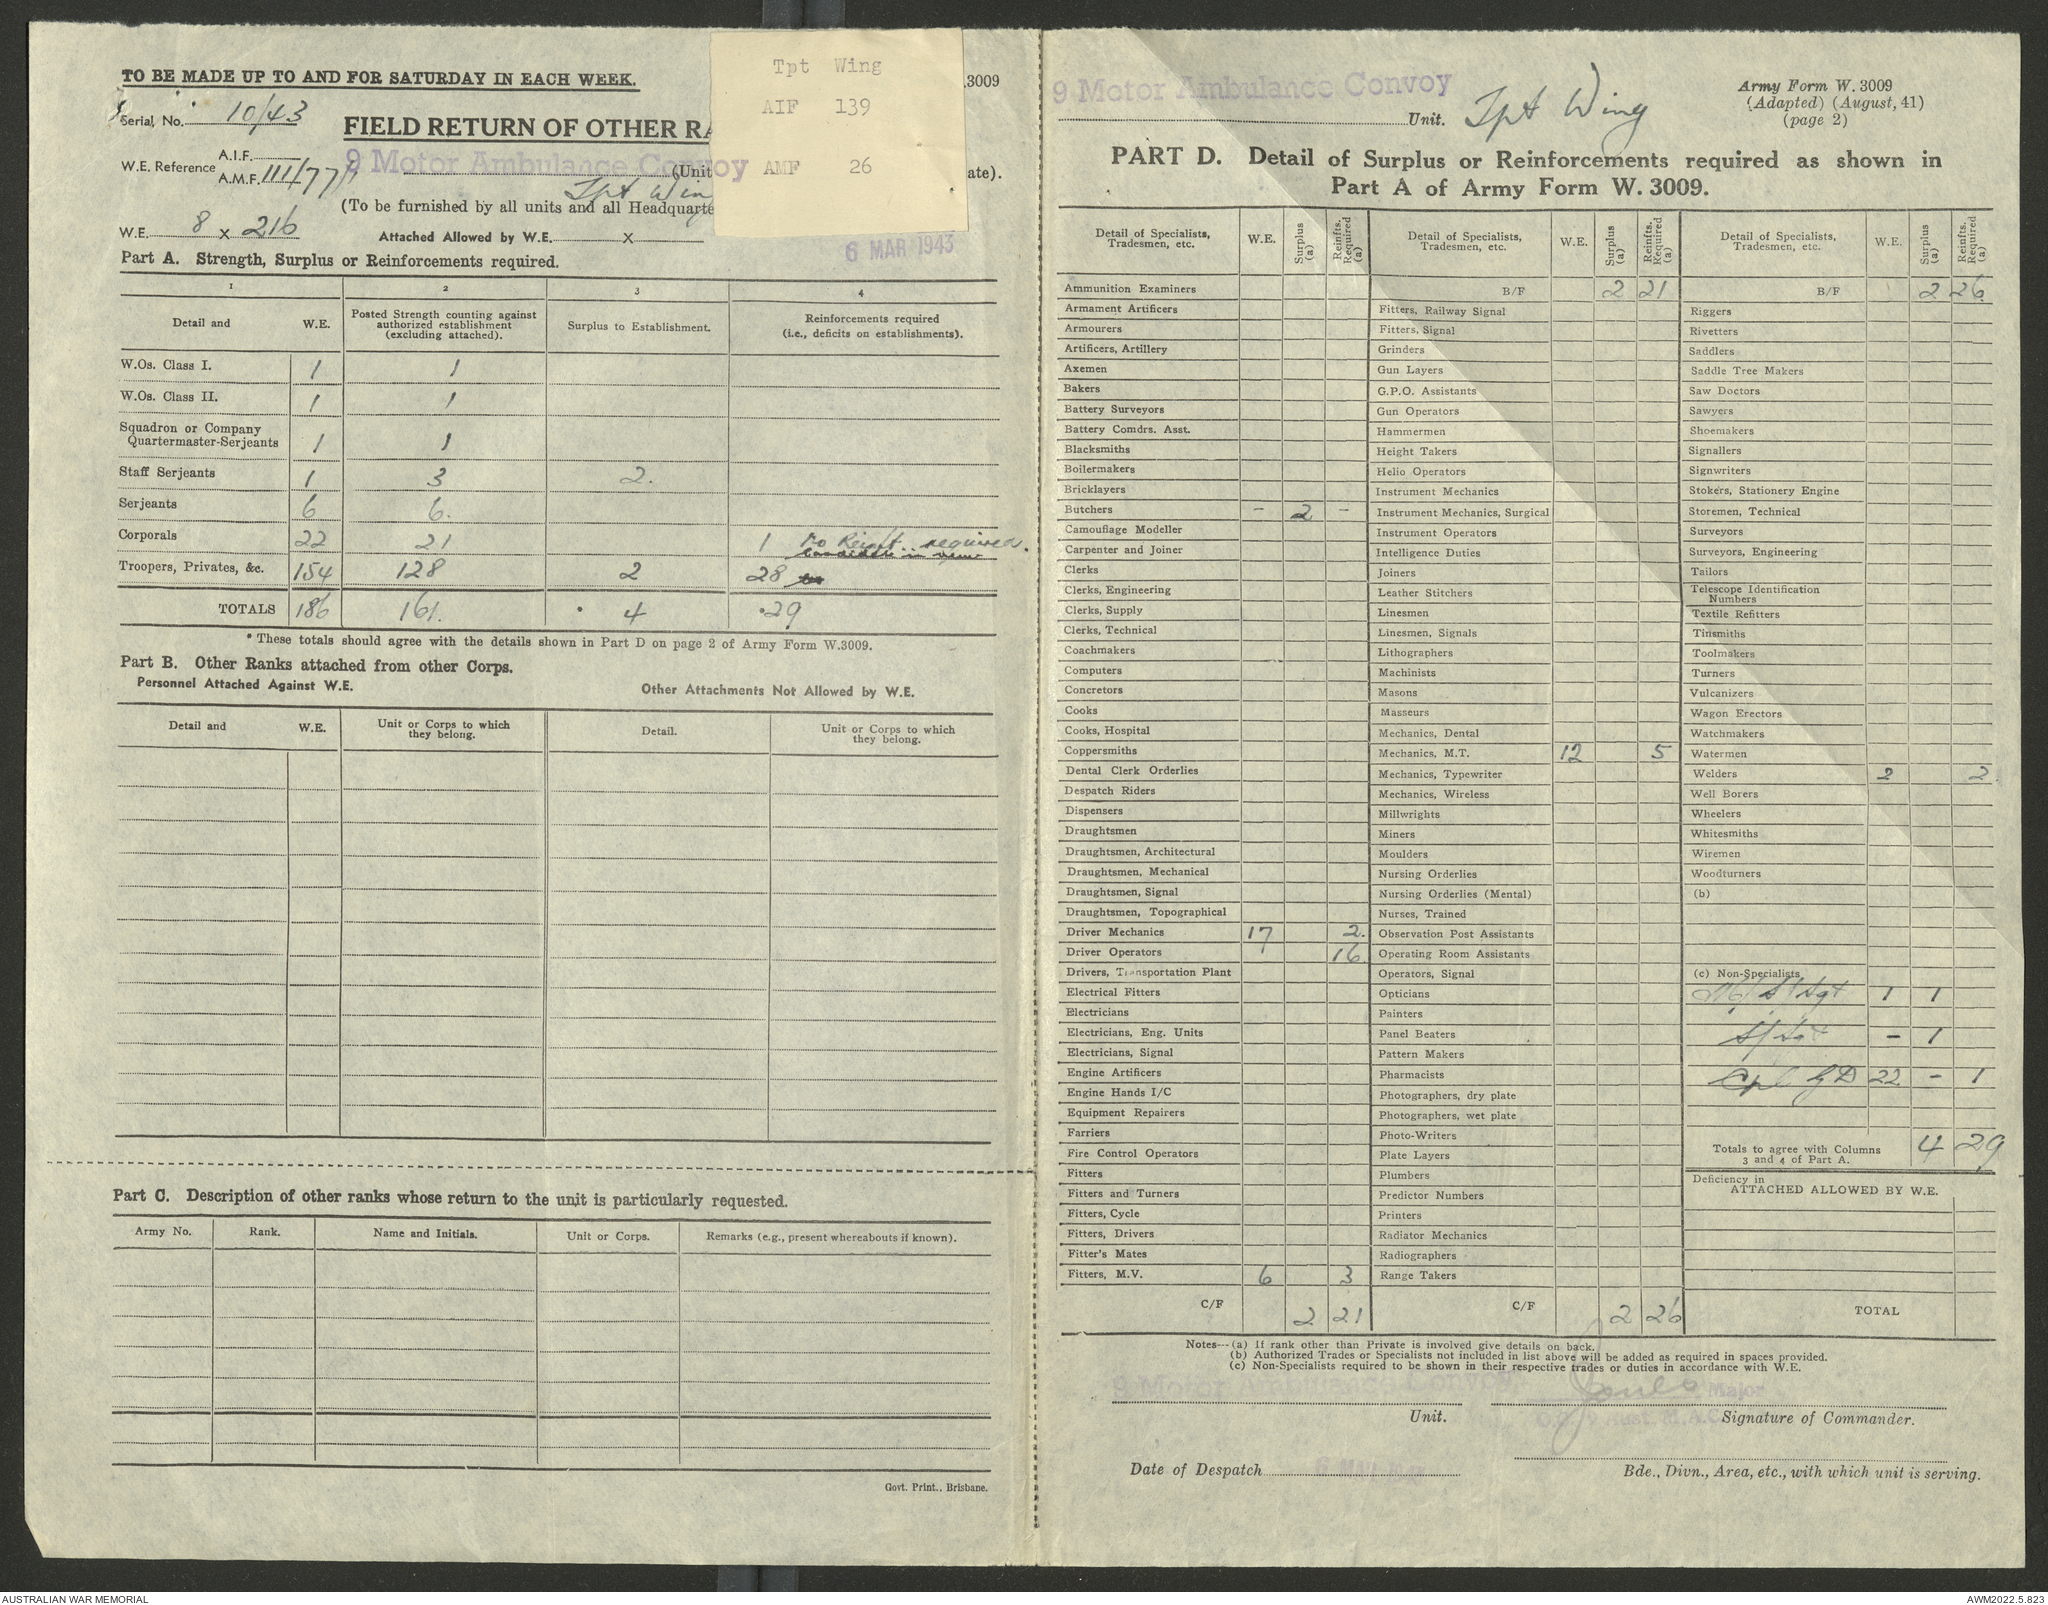 TO BE MADE UP TO AND FOR SATURDAY IN EACH WEEK.
.3009
Tpt Wing
AIF 139
AMF 26
Serial, No. 10/43
FIELD RETURN OF OTHER RA
W.E. Reference A.I.F.
A.M.F. 111/77
9 Motor Ambulance Convoy (Unit
ate).
Tpt Win
(To be furnished by all units and all Headquarte
W.E. 8 x 216
Attached Allowed by W.E. x
6 MAR 1943
Part A. Strength, Surplus or Reinforcements required.
1 2 3 4
Detail and W.E. Posted Strength counting against authorized establishment (excluding attached). Surplus to Establishment. Reinforcements required (i.e., deficits on establishments).
W.Os. Class I. 1 1
W.Os. Class II. 1 1
Squadron or Company Quartermaster-Serjeants 1 1
Staff Serjeants 1 3 2.
Serjeants 6 6.
Corporals 22 21 1 No Reinft required.
Troopers, Privates, &c. 154 128 2 28
TOTALS 186 161. • 4 •29
* These totals should agree with the details shown in Part D on page 2 of Army Form W.3009.
Part B. Other Ranks attached from other Corps.
Personnel Attached Against W.E. Other Attachments Not Allowed by W.E.
Detail and W.E. Unit or Corps to which they belong. Detail. Unit or Corps to which they belong.
Part C. Description of other ranks whose return to the unit is particularly requested.
Army No. Rank. Name and Initials. Unit or Corps. Remarks (e.g., present whereabouts if known).
Govt. Print., Brisbane.
9 Motor Ambulance Convoy
Unit. Tpt Wing
Army Form W. 3009
(Adapted) (August, 41)
(page 2)
PART D. Detail of Surplus or Reinforcements required as shown in
Part A of Army Form W. 3009.
Detail of Specialists, Tradesmen, etc. W.E. Surplus (a) Reinfts. Required (a)
Ammunition Examiners
Armament Artificers
Armourers
Artificers, Artillery
Axemen
Bakers
Battery Surveyors
Battery Comdrs. Asst.
Blacksmiths
Boilermakers
Bricklayers
Butchers - 2 -
Camouflage Modeller
Carpenter and Joiner
Clerks
Clerks, Engineering
Clerks, Supply
Clerks, Technical
Coachmakers
Computers
Concretors
Cooks
Cooks, Hospital
Coppersmiths
Dental Clerk Orderlies
Despatch Riders
Dispensers
Draughtsmen
Draughtsmen, Architectural
Draughtsmen, Mechanical
Draughtsmen, Signal
Draughtsmen, Topographical
Driver Mechanics 17 2.
Driver Operators 16
Drivers, Transportation Plant
Electrical Fitters
Electricians
Electricians, Eng. Units
Electricians, Signal
Engine Artificers
Engine Hands I/C
Equipment Repairers
Farriers
Fire Control Operators
Fitters
Fitters and Turners
Fitters, Cycle
Fitters, Drivers
Fitter's Mates
Fitters, M.V. 6 3
C/F 2 21
Detail of Specialists, Tradesmen, etc. W.E. Surplus (a) Reinfts. Required (a)
B/F 2 21
Fitters, Railway Signal
Fitters, Signal
Grinders
Gun Layers
G.P.O. Assistants
Gun Operators
Hammermen
Height Takers
Helio Operators
Instrument Mechanics
Instrument Mechanics, Surgical
Instrument Operators
Intelligence Duties
Joiners
Leather Stitchers
Linesmen
Linesmen, Signals
Lithographers
Machinists
Masons
Masseurs
Mechanics, Dental
Mechanics, M.T. 12 5
Mechanics, Typewriter
Mechanics, Wireless
Millwrights
Miners
Moulders
Nursing Orderlies
Nursing Orderlies (Mental)
Nurses, Trained
Observation Post Assistants
Operating Room Assistants
Operators, Signal
Opticians
Painters
Panel Beaters
Pattern Makers
Pharmacists
Photographers, dry plate
Photographers, wet plate
Photo-Writers
Plate Layers
Plumbers
Predictor Numbers
Printers
Radiator Mechanics
Radiographers
Range Takers
C/F 2 26
Detail of Specialists, Tradesmen, etc. W.E. Surplus (a) Reinfts. Required (a)
B/F 2 26
Riggers
Rivetters
Saddlers
Saddle Tree Makers
Saw Doctors
Sawyers
Shoemakers
Signallers
Signwriters
Stokers, Stationery Engine
Storemen, Technical
Surveyors
Surveyors, Engineering
Tailors
Telescope Identification Numbers
Textile Refitters
Tinsmiths
Toolmakers
Turners
Vulcanizers
Wagon Erectors
Watchmakers
Watermen
Welders 2 2.
Well Borers
Wheelers
Whitesmiths
Wiremen
Woodturners
(b)
(c) Non-Specialists
S/Sgt 1 1
S/Sgt - 1
Cpl GD 22 - 1
Totals to agree with Columns 3 and 4 of Part A. 4 29
Deficiency in
ATTACHED ALLOWED BY W.E.
TOTAL
Notes---(a) If rank other than Private is involved give details on back.
(b) Authorized Trades or Specialists not included in list above will be added as required in spaces provided.
(c) Non-Specialists required to be shown in their respective trades or duties in accordance with W.E.
9 Motor Ambulance Convoy
Major
O.C. 9 Aust. M.A.C.
Unit. Signature of Commander.
Date of Despatch 6 MAR 1943
Bde., Divn., Area, etc., with which unit is serving.
AUSTRALIAN WAR MEMORIAL
AWM2022.5.823